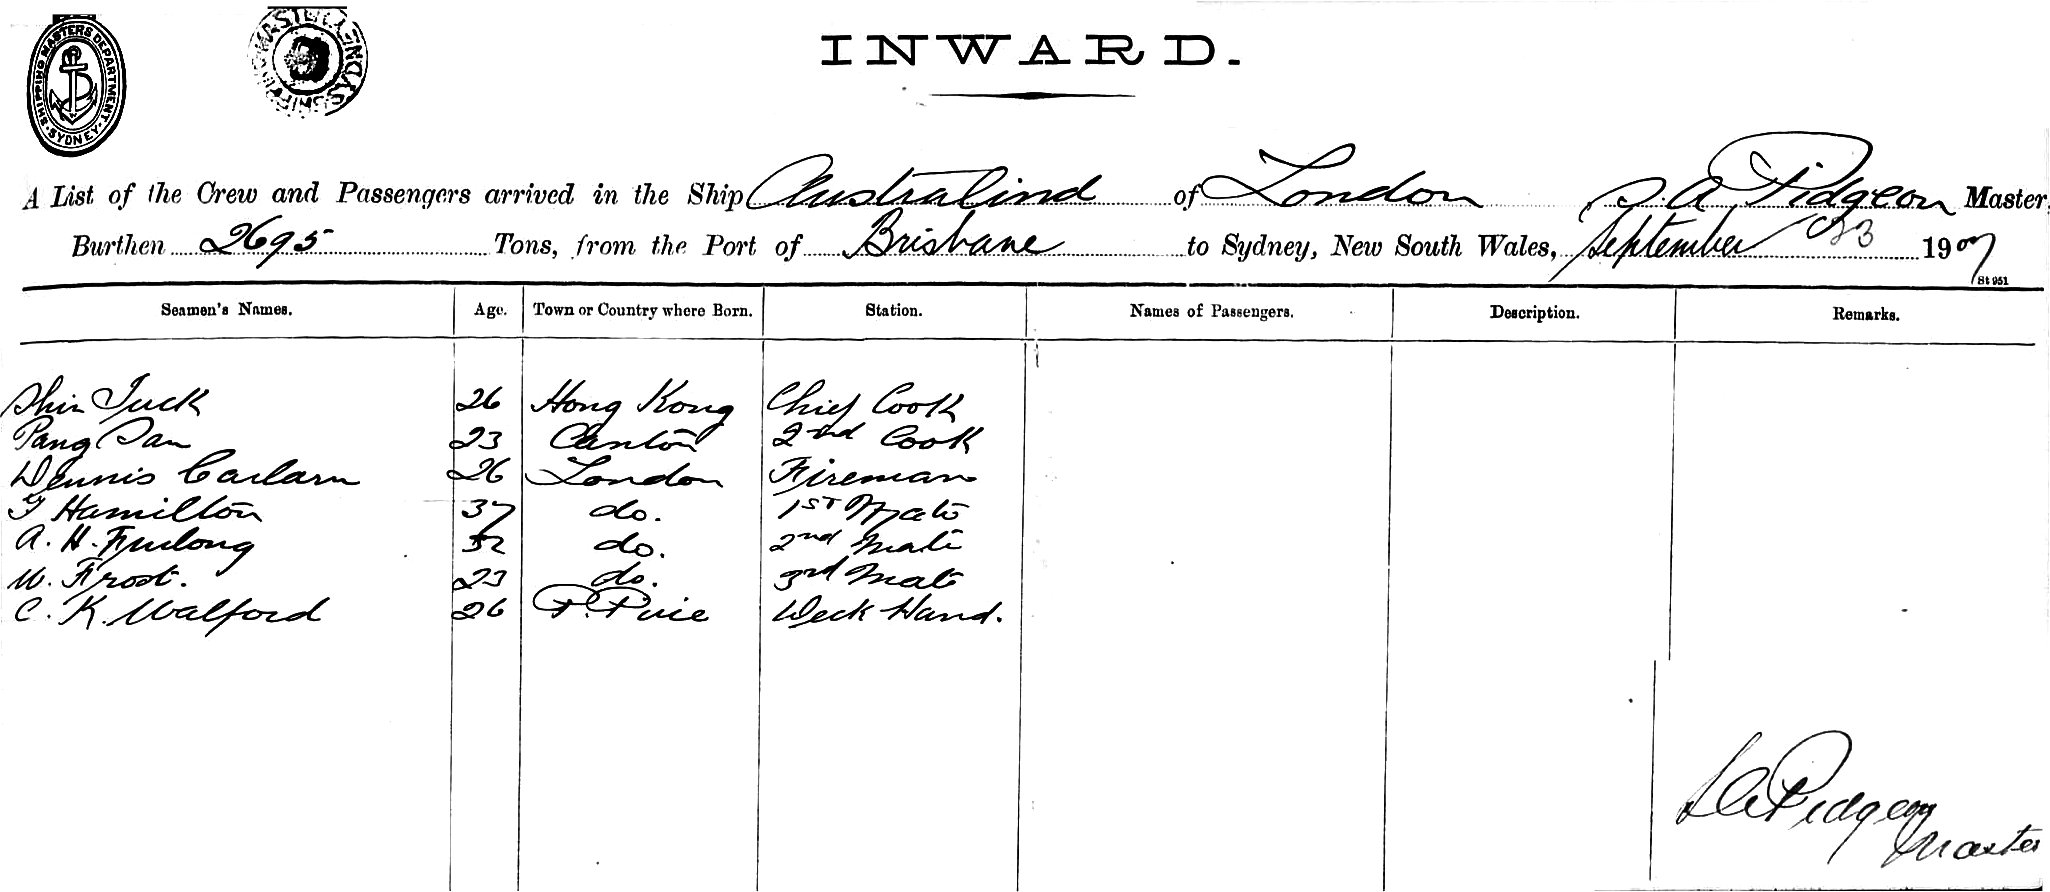 SHIPPING MASTERS DEPARTMENT. SYDNEY
SHIPPING MASTER SYDNEY
INWARD.
A List of the Crew and Passengers arrived in the Ship Australind of London S. A Pidgeon Master,
Burthen 2695 Tons, from the Port of Brisbane to Sydney, New South Wales, September 23 1907
St 951
Seamen's Names. Age. Town or Country where Born. Station. Names of Passengers. Description. Remarks.
Shin Tuck 26 Hong Kong Chief Cook
Pang San 23 Canton 2nd Cook
Dennis 26 London Fireman
Hamilton 37 do. 1st Mate
A. H. Furlong 32 do. 2nd Mate
W. Frost. 23 do. 3rd Mate
C. K. Walford 26 P. Pirie Deck Hand.
S A Pidgeon
Master